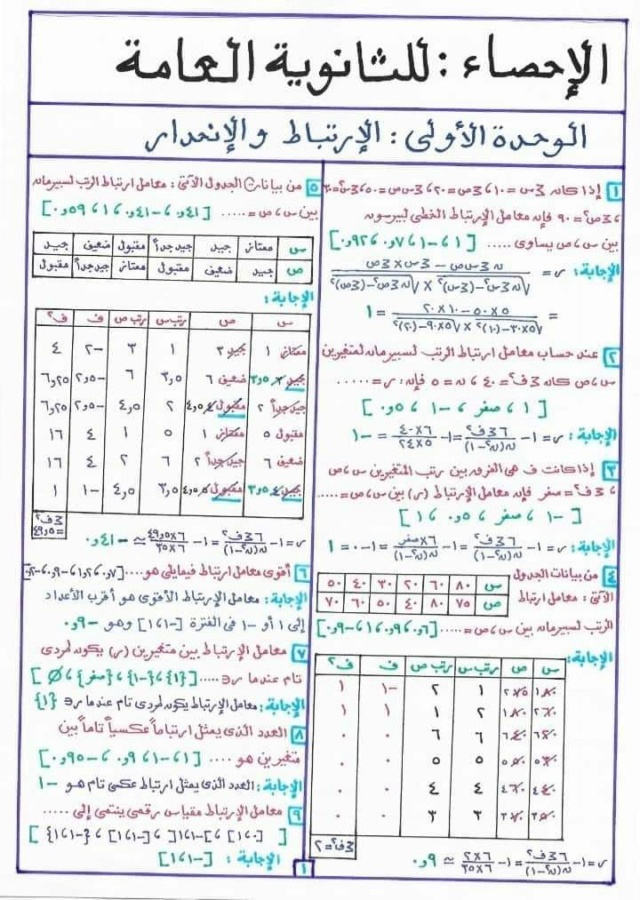 الإحصاء : للثانوية العامة
الوحدة الأولى : الإرتباط والإنحدار
١ إذا كان ∑س = ١٠ ، ∑ص = ٢٠ ، ∑س ص = ٥٠ ، ∑س² = ٣٠
، ∑ص² = ٩٠ فإن معامل الإرتباط الخطى لبيرسون
بين س ، ص يساوى ..... [ ١ ، -١ ، ٧و٠ ، ٩٢٦و٠ ]
الإجابة : ر = (ن∑س ص - ∑س × ∑ص) / (√(ن∑س² - (∑س)²) × √(ن∑ص² - (∑ص)²))
= (٥×٥٠ - ١٠×٢٠) / (√(٥×٣٠ - (١٠)²) × √(٥×٩٠ - (٢٠)²)) = ١
٢ عند حساب معامل ارتباط الرتب لسبيرمان لمتغيرين
س ، ص كان ∑ف² = ٤٠ ، ن = ٥ فإن : ر = ......
[ ١ ، صفر ، -١ ، ٥و٠ ]
الإجابة : ر = ١ - ٦∑ف² / ن(ن²-١) = ١ - ٦×٤٠ / ٥×٢٤ = -١
٣ إذا كانت ف هى الفرق بين رتب المتغيرين س ، ص
، ∑ف² = صفر فإن معامل الإرتباط (ر) بين س ، ص = .....
[ -١ ، صفر ، ٥و٠ ، ١ ]
الإجابة : ر = ١ - ٦∑ف² / ن(ن²-١) = ١ - ٦×صفر / ن(ن²-١) = ١ - ٠ = ١
٤ من بيانات الجدول
الآتى : معامل ارتباط
س ٨٠ ٦٠ ٢٠ ٣٠ ٤٠ ٥٠
ص ٧٥ ٨٠ ٤٠ ٥٠ ٦٠ ٧٠
الرتب لسبيرمان بين س ، ص = ..... [ ٦و٠ ، ٩٦و٠ ، ١ ، -٩و٠ ]
الإجابة :
س ص رتب س رتب ص ف ف²
١ ٨٠ ٢ ٧٥ ١ ٢ -١ ١
٢ ٦٠ ١ ٨٠ ٢ ١ ١ ١
٦ ٢٠ ٦ ٤٠ ٦ ٦ ٠ ٠
٥ ٣٠ ٥ ٥٠ ٥ ٥ ٠ ٠
٤ ٤٠ ٤ ٦٠ ٤ ٤ ٠ ٠
٣ ٥٠ ٣ ٧٠ ٣ ٣ ٠ ٠
∑ف² = ٢
ر = ١ - ٦∑ف² / ن(ن²-١) = ١ - ٦×٢ / ٦×٣٥ ≈ ٩و٠
٥ من بيانات الجدول الآتى : معامل ارتباط الرتب لسبيرمان
بين س ، ص = ..... [ ٤١و٠ ، -٤١و٠ ، ١ ، ٥٩و٠ ]
س ممتاز جيد جيد جداً مقبول ضعيف جيد
ص جيد ضعيف مقبول ممتاز جيد جداً مقبول
الإجابة :
س ص رتب س رتب ص ف ف²
ممتاز ١ جيد ٣ ١ ٣ -٢ ٤
جيد ٣و٥ ضعيف ٦ ٣و٥ ٦ -٢و٥ ٦و٢٥
جيد جداً ٢ مقبول ٤و٥ ٢ ٤و٥ -٢و٥ ٦و٢٥
مقبول ٥ ممتاز ١ ٥ ١ ٤ ١٦
ضعيف ٦ جيد جداً ٢ ٦ ٢ ٤ ١٦
جيد ٣و٥ مقبول ٤و٥ ٣و٥ ٤و٥ -١ ١
∑ف²
= ٤٩و٥
ر = ١ - ٦∑ف² / ن(ن²-١) = ١ - ٦×٤٩و٥ / ٦×٣٥ ≈ -٤١و٠
٦ أقوى معامل ارتباط فيما يلى هو ....
الإجابة : معامل الإرتباط الأقوى هو أقرب الأعداد
إلى ١ أو -١ فى الفترة [-١ ، ١] وهو -٩و٠
٧ معامل الإرتباط بين متغيرين (ر) يكون لطردى
تام عندما ر ∈ ..... [ {١} ، {-١} ، {صفر} ، Ø ]
الإجابة : معامل الإرتباط يكون لطردى تام عندما ر ∈ {١}
٨ العدد الذى يمثل ارتباطاً عكسياً تاماً بين
متغيرين هو .... [ -١ ، ٩٦و٠ ، ١ ، -٩٥و٠ ]
الإجابة : العدد الذى يمثل ارتباط عكسى تام هو -١
٩ معامل الإرتباط مقياس رقمى ينتمى إلى .....
[ [-١ ، ٠] ، ]-١ ، ١[ ، [-١ ، ١] ، {-١ ، ١} ]
الإجابة : [-١ ، ١]
١